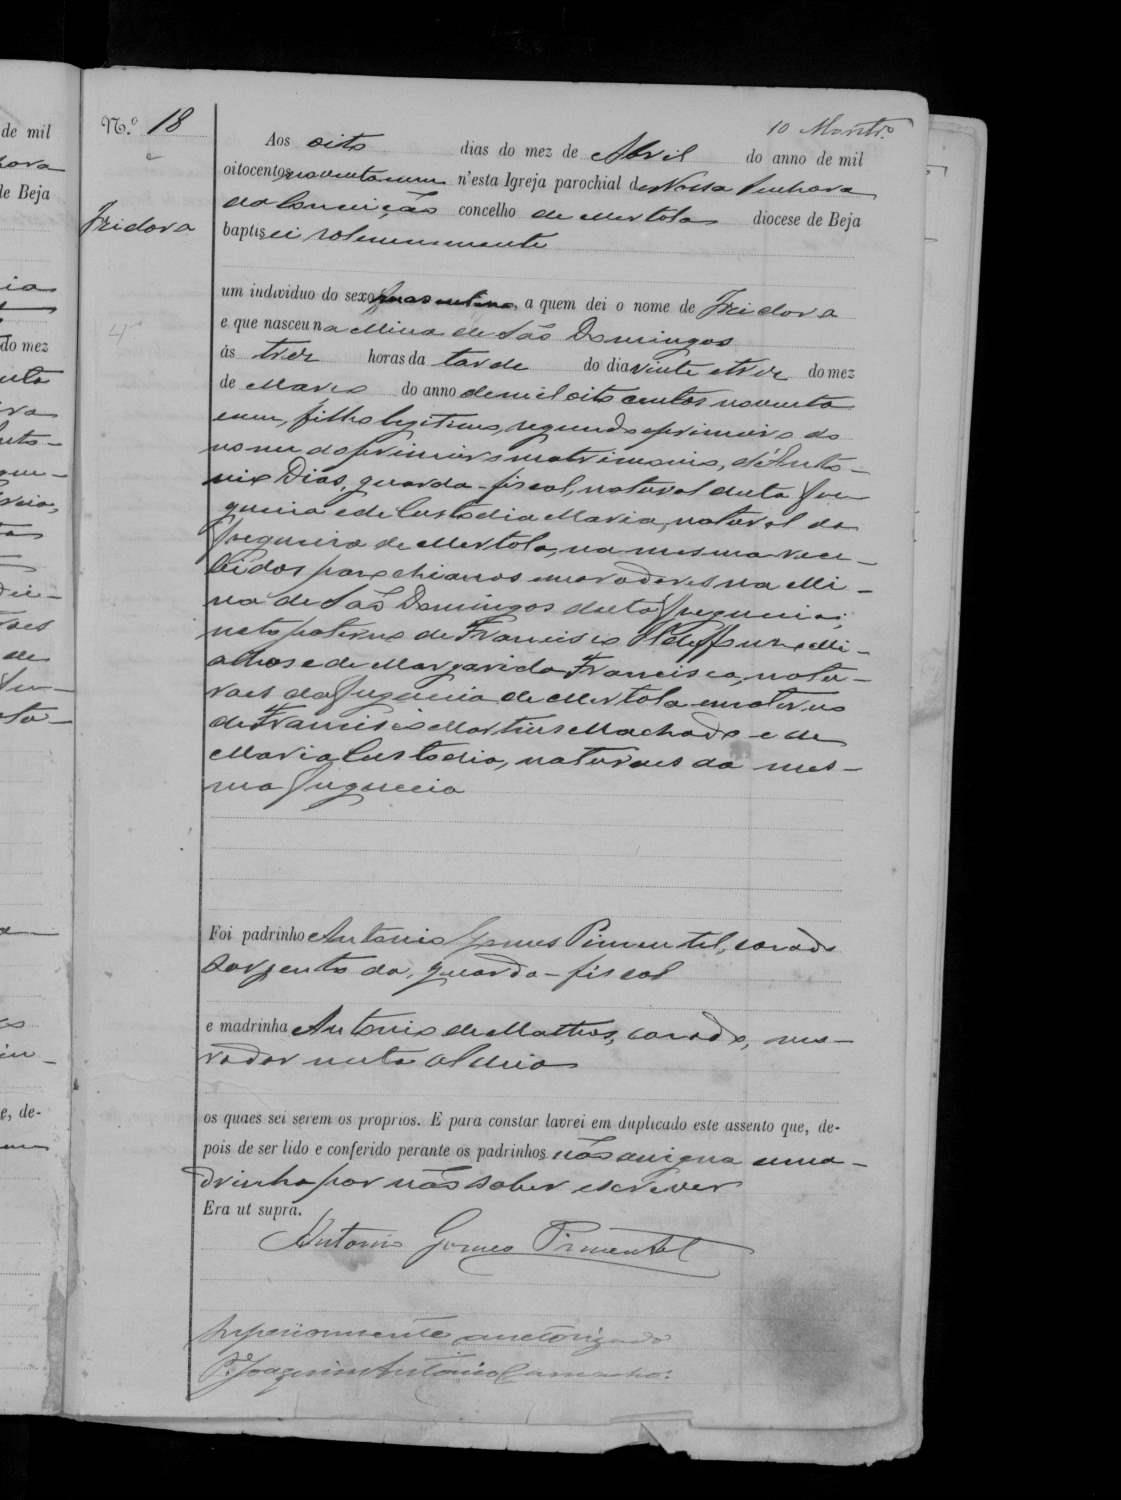 10 Montr.º
N.º 18
Izidora
Aos oito dias do mez de Abril do anno de mil
oitocentos noventa e um n'esta Igreja parochial de Nossa Senhora
da Conceição concelho de Mertola diocese de Beja
baptisei solemnemente
um individuo do sexo masculino, a quem dei o nome de Izidora
e que nasceu na Mina de São Domingos
ás trez horas da tarde do dia vinte e trez do mez
de Março do anno de mil oito centos noventa
e um, filho legitimo, segundo e primeiro do
nome do primeiro matrimonio, d'Anto-
nio Dias, guarda-fiscal, natural desta fre
guezia e de Custodia Maria, natural da
freguezia de Mertola, na mesma rece-
bidos parochianos e moradores na Mi-
na de São Domingos desta freguezia;
neto paterno de Francisco
e de Margarida Francisca, natu-
raes da freguezia de Mertola e materno
de Francisco Martins Machado e de
Maria Custodia, naturaes da mes-
ma freguezia
Foi padrinho Antonio Gomes Pimentel, casado
Sargento da guarda-fiscal
e madrinha Antonio de Mattos, casado, mo-
rador nesta aldeia
os quaes sei serem os proprios. E para constar lavrei em duplicado este assento que, de-
pois de ser lido e conferido perante os padrinhos não assigna a ma-
drinha por não saber escrever
Era ut supra.
Antonio Gomes Pimentel
Superiormente auctorizado
P.e Joaquim Antonio Camacho.
de mil
de Beja
do mez
e, de-